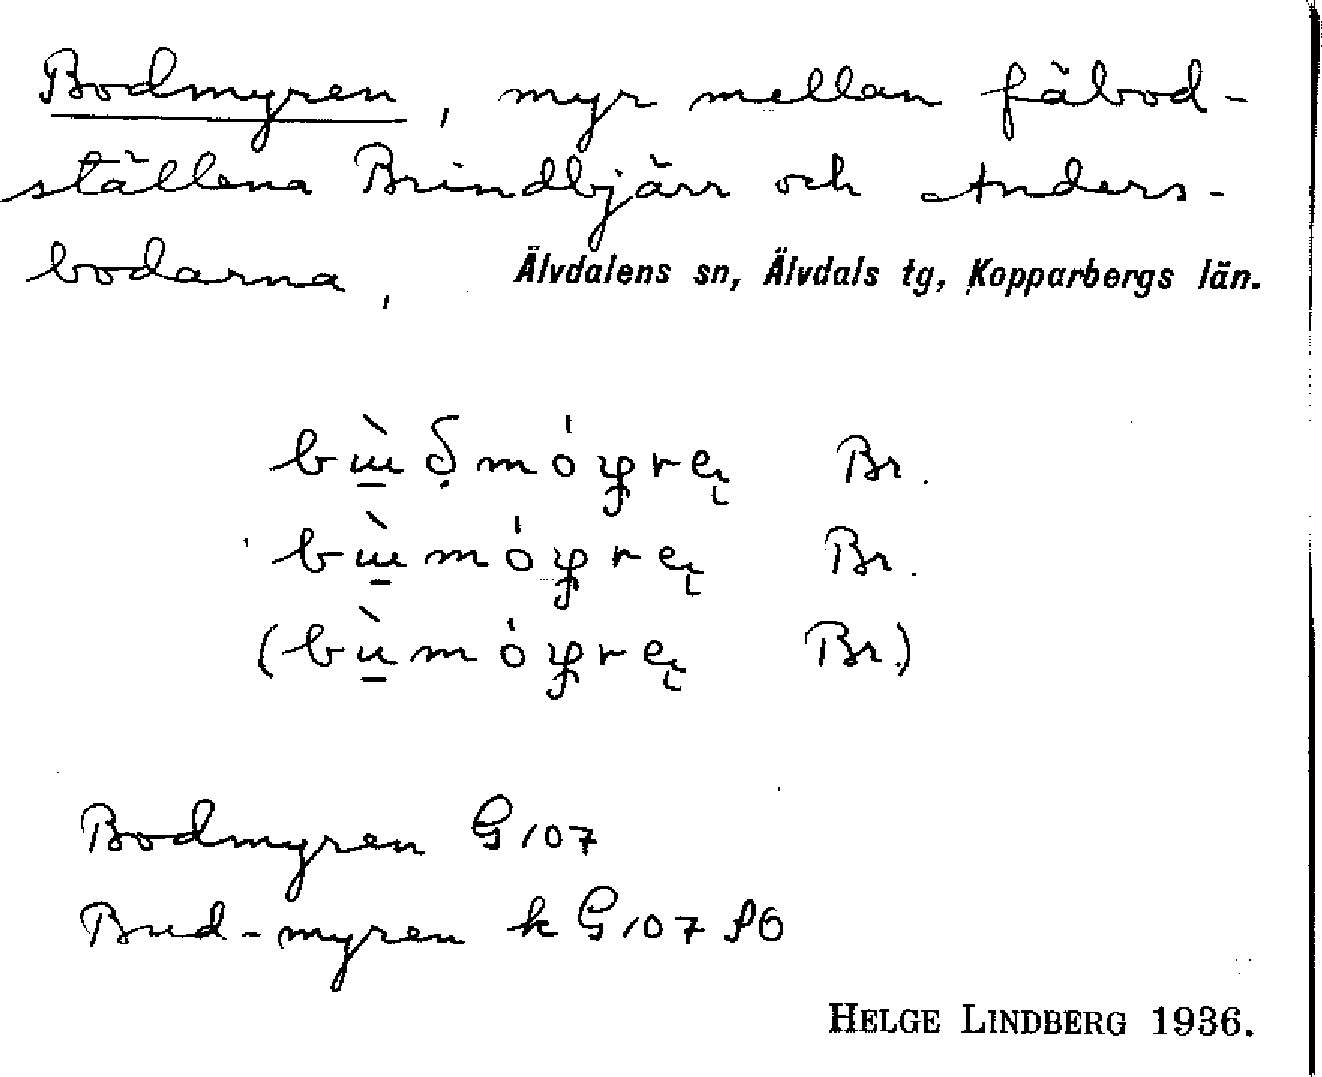 Bodmyren, myr mellan fäbod-
ställena Brindbjärr och Anders-
bodarna, Älvdalens sn, Älvdals tg, Kopparbergs län.
Br.
Br.
Br.)
Bodmyren G 107
Bud-myren k G 107 SÖ
HELGE LINDBERG 1936.